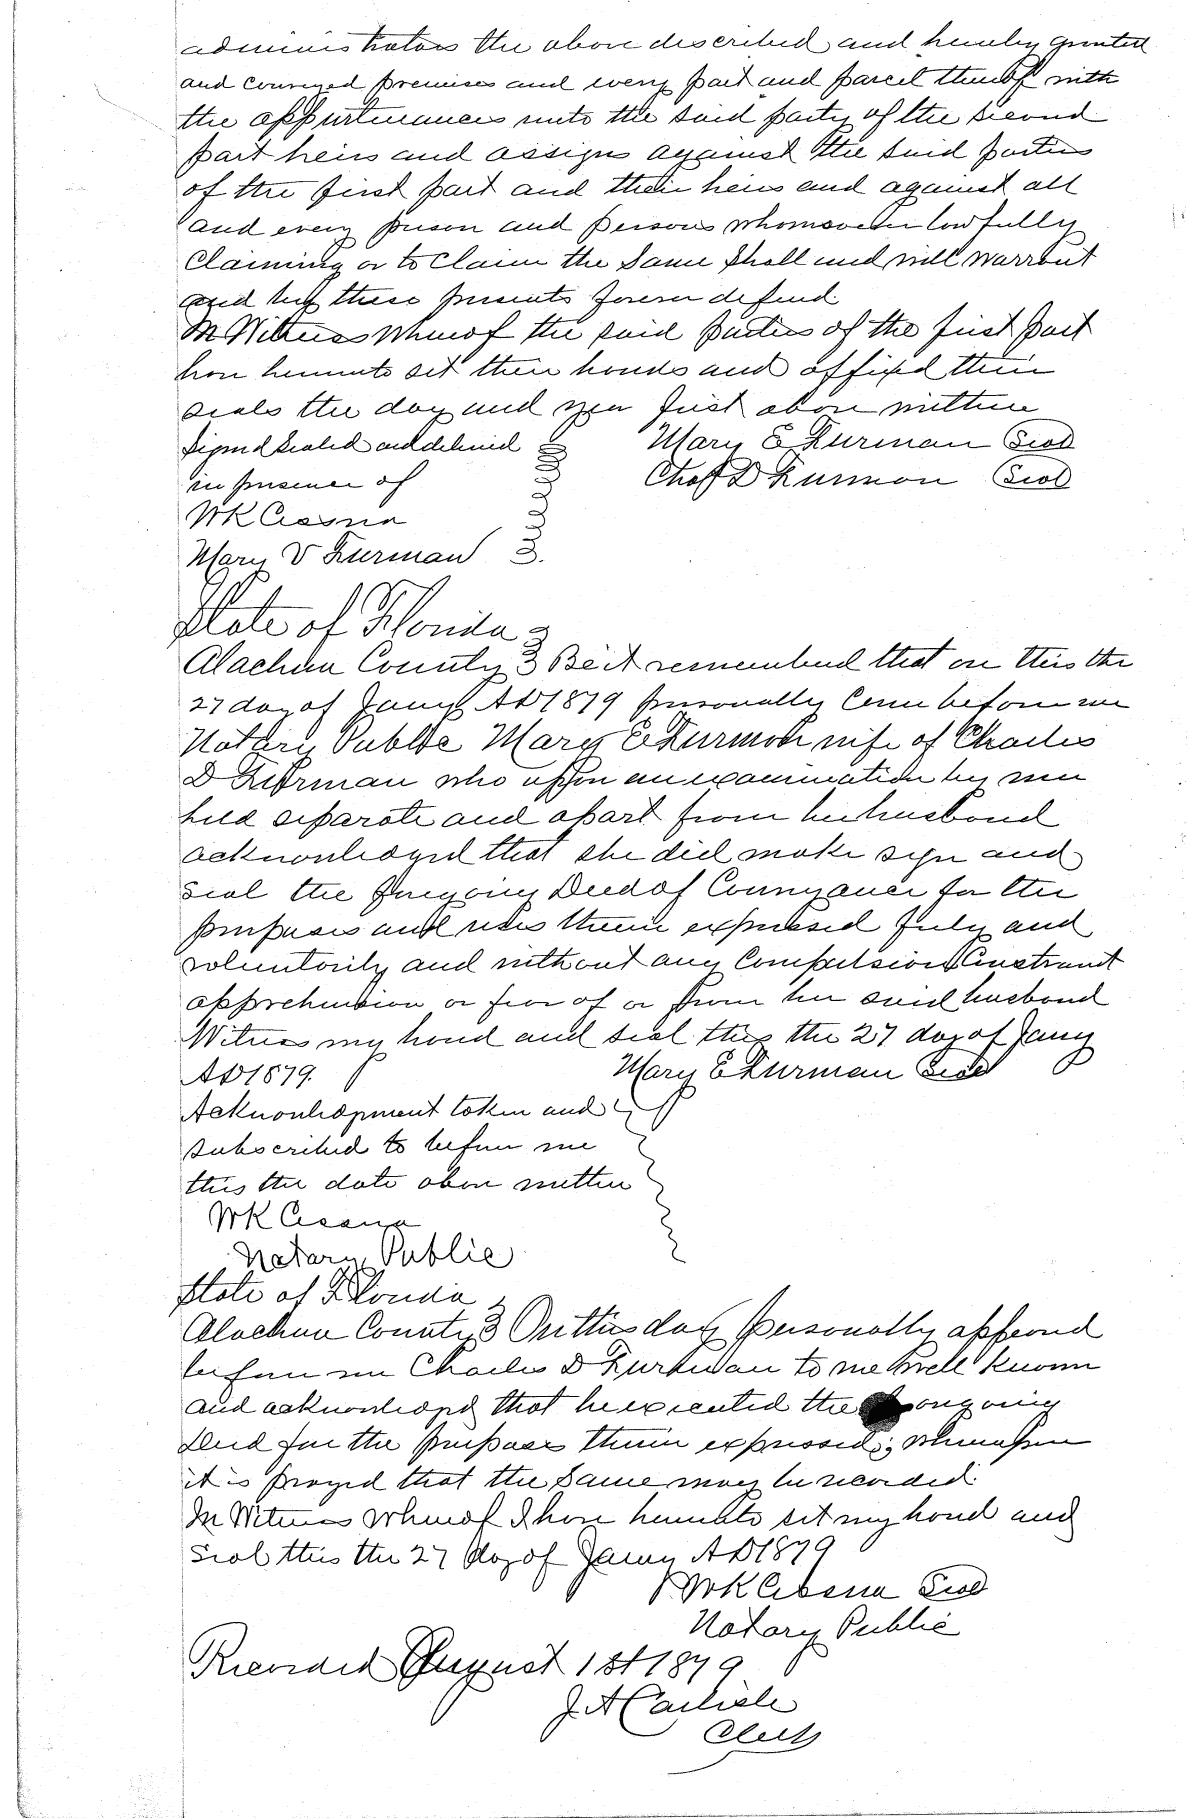 administrators the above described and hereby granted
and conveyed premises and every part and parcel thereof with
the appurtenances unto the said party of the second
part heirs and assigns against the said parties
of the first part and their heirs and against all
and every person and persons whomsoever lawfully
Claiming or to Claim the Same Shall and will warrant
and by these presents forever defend.
In Witness Whereof the said parties of the first part
have hereunto set their hands and affixed their
seals the day and year first above written
Signed Sealed and delivered Mary E Furman Seal
in presence of Chas D Furman Seal
WK Cessna
Mary V Furman
State of Florida
Alachua County Be it remembered that on this the
27 day of Jany AD 1879 personally Came before me
Notary Public Mary E Furman wife of Charles
D Furman who upon an examination by me
held separate and apart from her husband
acknowledged that she did make sign and
seal the foregoing Deed of Conveyance for the
purposes and uses therein expressed freely and
voluntarily and without any Compulsion Constraint
apprehension or fear of or from her said husband
Witness my hand and seal this the 27 day of Jany
AD 1879. Mary E Furman Seal
Acknowledgment taken and
subscribed to before me
this the date above written
WK Cessna
Notary Public
State of Florida
Alachua County On this day personally appeared
before me Charles D Furman to me well known
and acknowledged that he executed the foregoing
deed for the purposes therein expressed; whereupon
it is prayed that the Same may be recorded.
In Witness Whereof I have hereunto set my hand and
Seal this the 27 day of Jany AD 1879
WK Cessna Seal
Notary Public
Recorded August 1st 1879
J. A Carlisle
Clerk